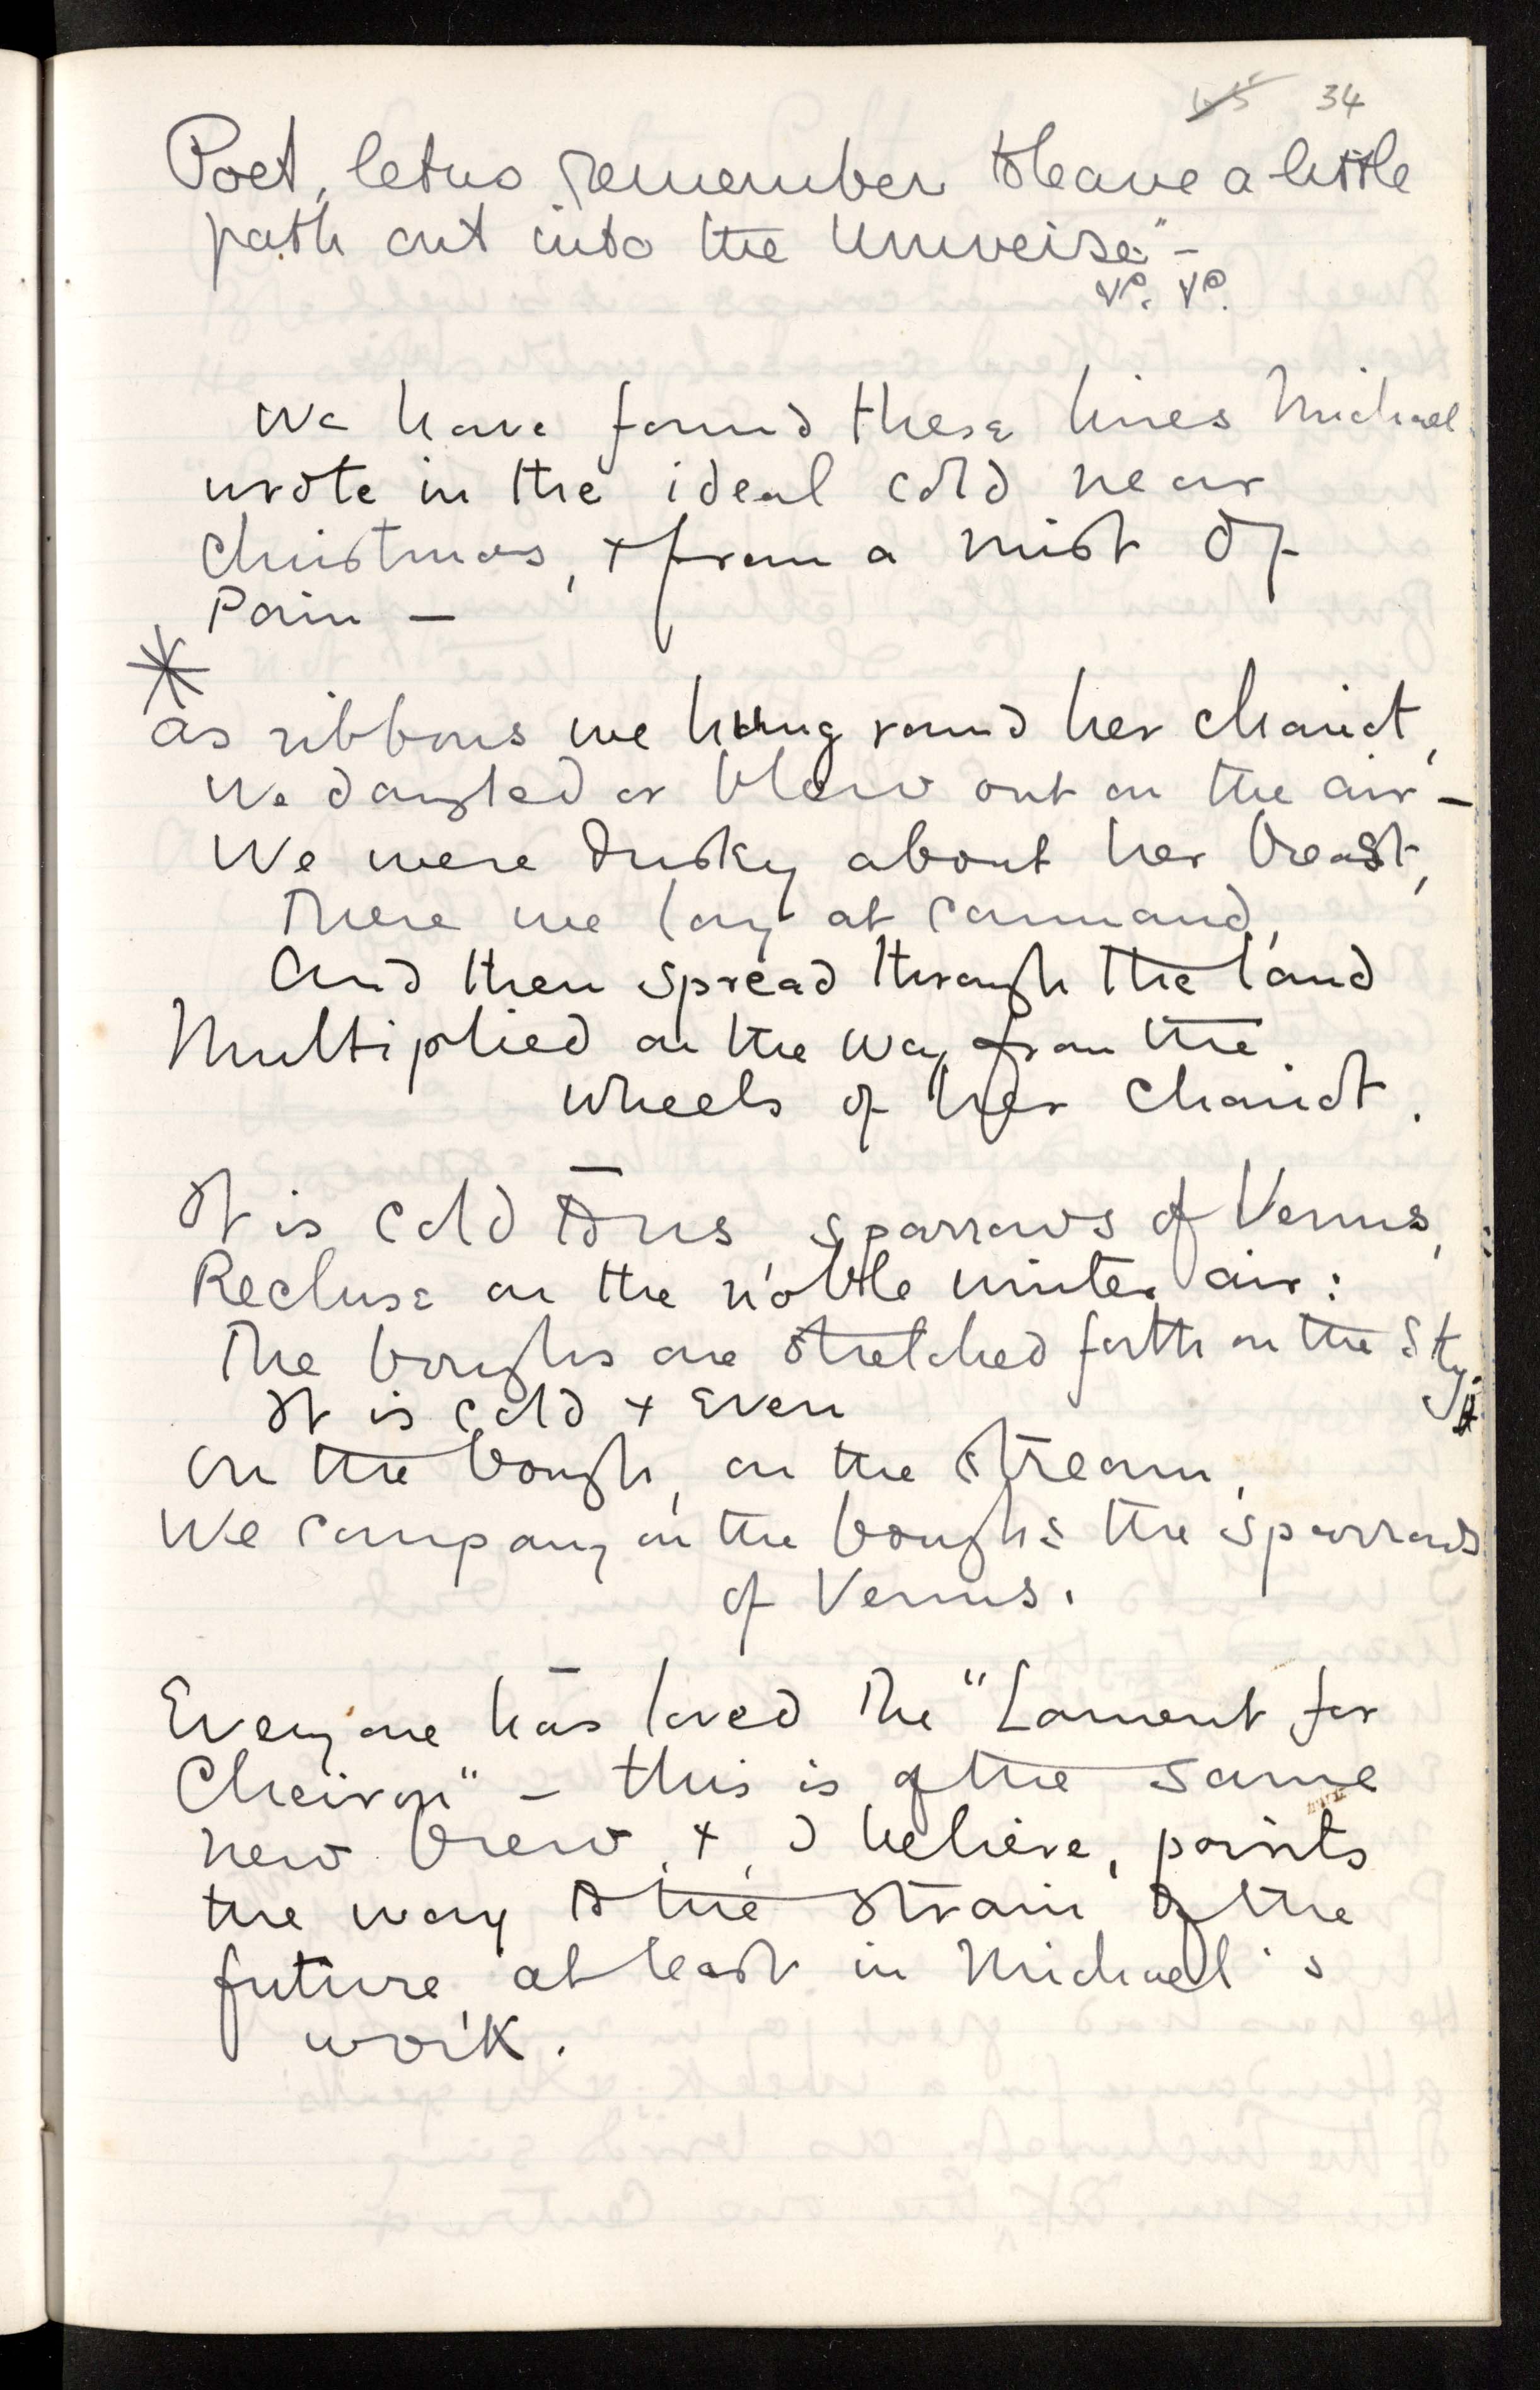 34
Poet, let us remember to leave a little
path out into the Universe." —
We have found these lines Michael
wrote in the ideal cold near
Christmas, + from a mist of
Pain —
* As ribbons we hung round her chariot,
We dangled or blew out on the air —
We were dusky about her breast,
There we lay at command,
And then spread through the land
Multiplied on the way from the
wheels of her chariot.
—
It is cold to us, sparrows of Venus,
Recluse on the noble winter air:
The boughs are stretched forth on the sky.
It is cold + even
On the bough, on the stream,
We company on the boughs the sparrows
of Venus.
—
Everyone has loved The "Lament for
Cheiron" — this is of the same
new brew, +, I believe, points
the way to the strain of the
future, at least in Michael's
work.